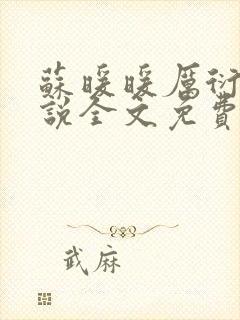 蘇暖暖厲衍
說全文免費
武麻